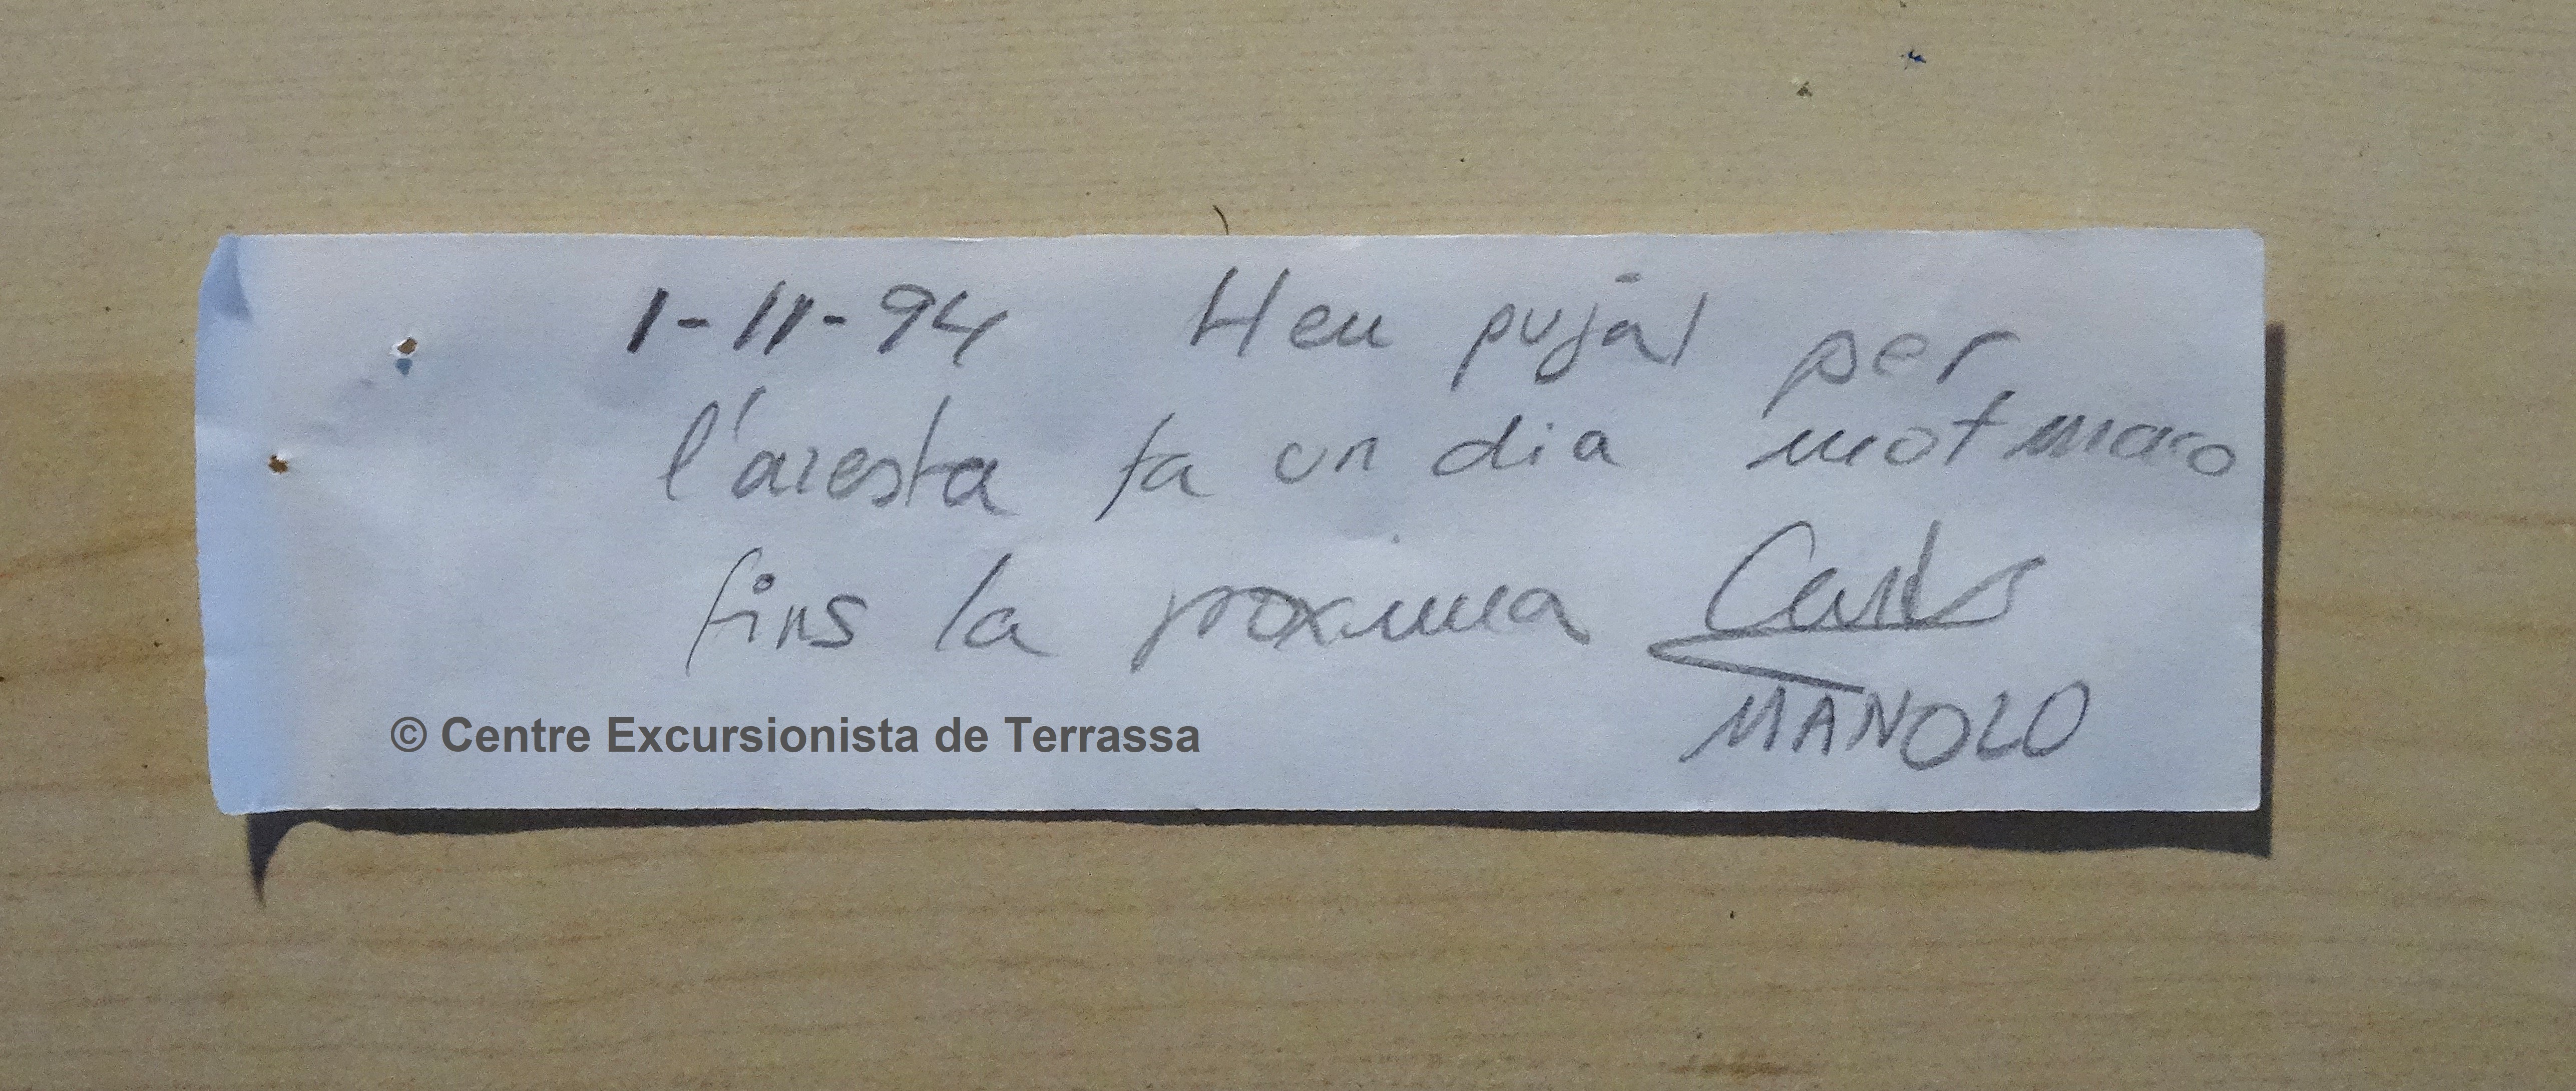 1-11-94 Heu pujat per
l'aresta fa un dia mot maco
fins la proxima Carles
MANOLO
© Centre Excursionista de Terrassa